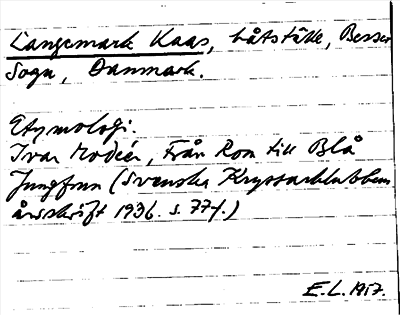 Langemark Kaas, båtställe, Besser
Sogn, Danmark.
Etymologi.
Ivar Modéer, Från Rom till Blå
Jungfrun (Svenska Kryssarklubbens
årsskrift 1936. s. 77f.)
E.L. 1957.